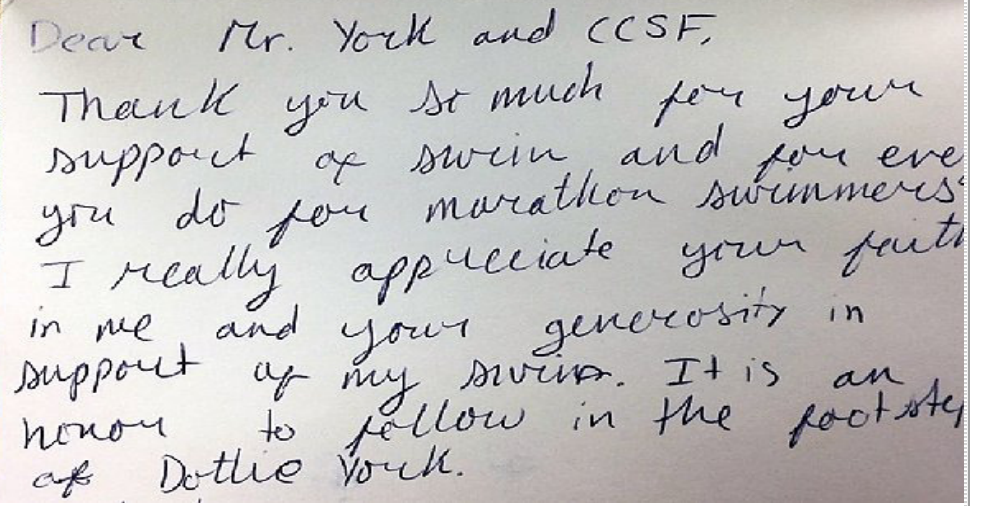 Dear Mr. York and CCSF,
Thank you so much for your
support of swim and for eve
you do for marathon swimmers
I really appreciate your faith
in me and your generosity in
support of my swim. It is an
honor to follow in the footstep
of Dottie York.